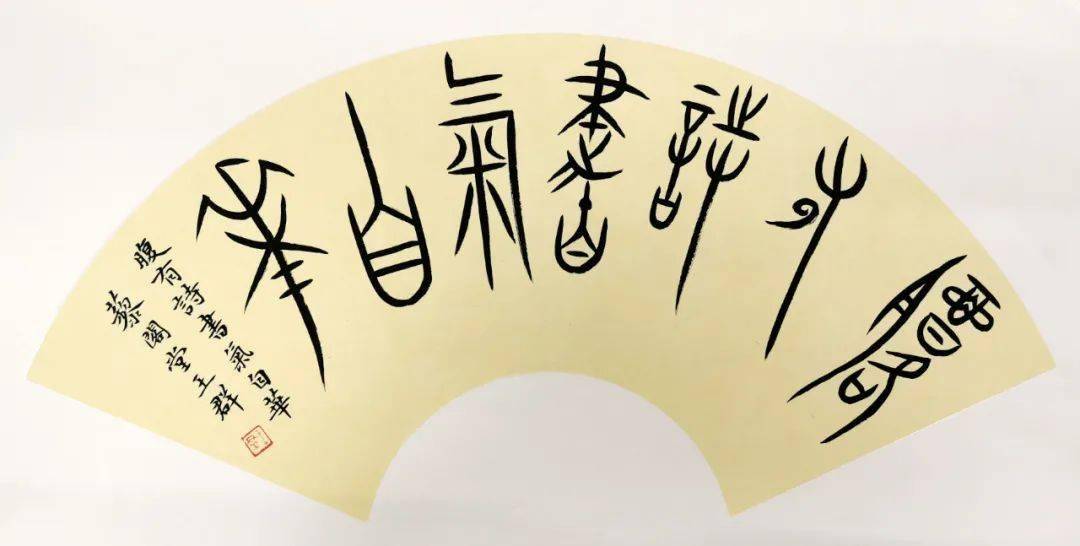 腹有詩書氣自華
腹有詩書氣自華
藜閣堂王群